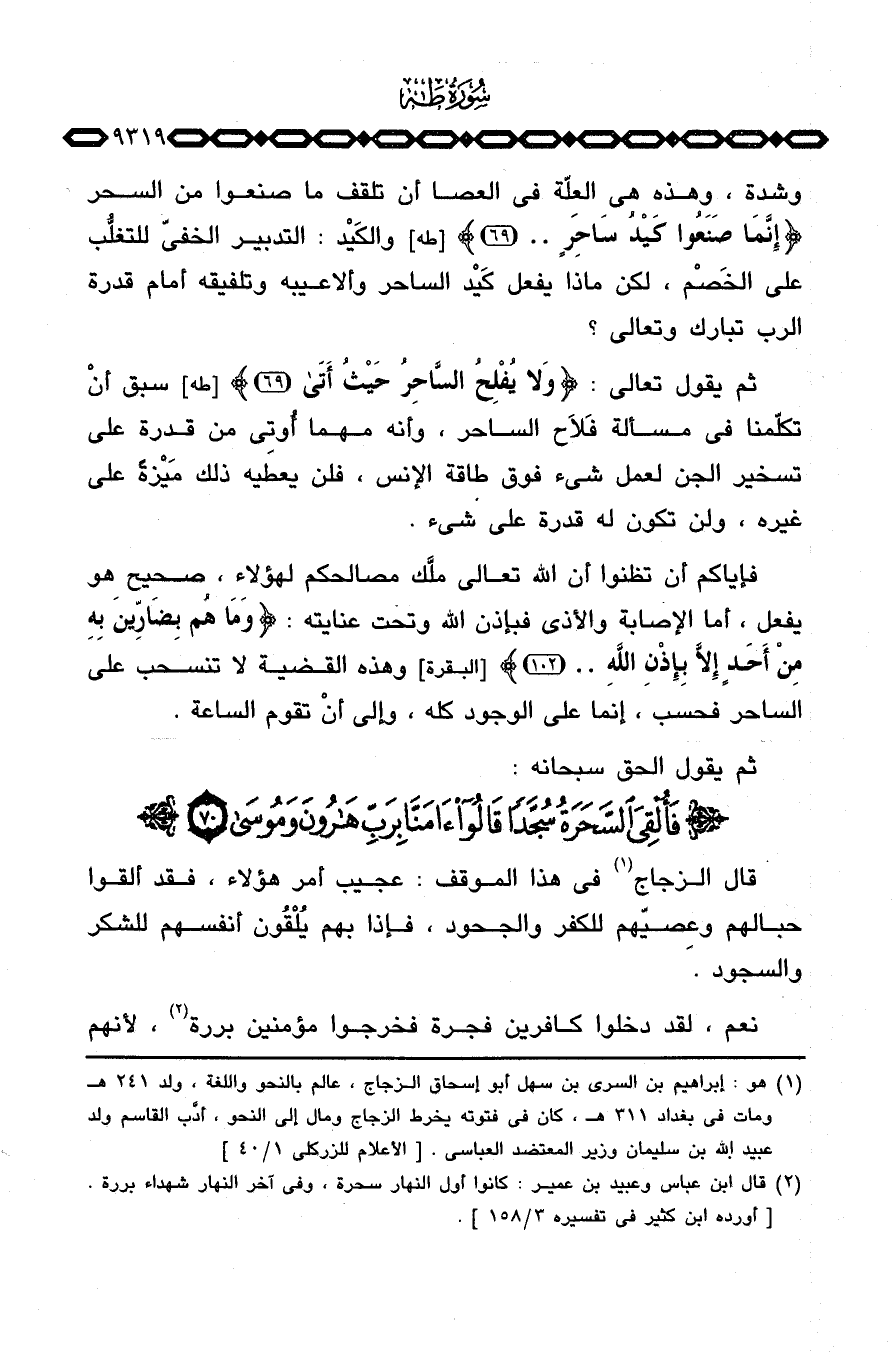 سُورَةُ طه
٩٣١٩
وشدة ، وهـذه هى العلّة فى العصـا أن تلقف ما صنعـوا من السـحر
﴿ إِنَّمَا صَنَعُوا كَيْدُ سَاحِرٍ .. (٦٩) ﴾ [طه] والكَيْد : التدبيـر الخفىّ للتغلُّب
على الخَصـْم ، لكن ماذا يفعل كَيْد الساحر وألاعـيبه وتلفيقه أمام قدرة
الرب تبارك وتعالى ؟
ثم يقول تعالى : ﴿ وَلا يُفْلِحُ السَّاحِرُ حَيْثُ أَتَىٰ (٦٩) ﴾ [طه] سبق أنْ
تكلّمنا فى مسـألة فَلَاح السـاحر ، وأنه مـهمـا أُوتِى من قـدرة على
تسخير الجن لعمل شىء فوق طاقة الإنس ، فلن يعطيه ذلك مَيْزةً على
غيره ، ولن تكون له قدرة على شىء .
فإياكم أن تظنوا أن الله تعـالى ملَّك مصالحكم لهؤلاء ، صـحيح هو
يفعل ، أما الإصابة والأذى فبإذن الله وتحت عنايته : ﴿ وَمَا هُم بِضَارِّينَ بِهِ
مِنْ أَحَدٍ إِلاَّ بِإِذْنِ اللَّهِ .. (١٠٢) ﴾ [البـقرة] وهـذه القـضيـة لا تنسـحب على
الساحر فحسب ، إنما على الوجود كله ، وإلى أنْ تقوم الساعة .
ثم يقول الحق سبحانه :
﴿ فَأُلْقِىَ ٱلسَّحَرَةُ سُجَّدًا قَالُوٓا۟ ءَامَنَّا بِرَبِّ هَـٰرُونَ وَمُوسَىٰ ٧٠ ﴾
قال الـزجاج(١) فى هذا المـوقف : عجـيب أمر هؤلاء ، فـقد ألقـوا
حبـالهم وعِصـيّهم للكفر والجـحود ، فـإذا بهم يُلْقُون أنفسـهم للشكر
والسجود .
نعم ، لقد دخلوا كـافرين فجـرة فخرجـوا مؤمنين بررة(٢) ، لأنهم
(١) هو : إبراهيم بن السرى بن سهل أبو إسحاق الـزجاج ، عالم بالنحو واللغة ، ولد ٢٤١ هـ
ومات فى بغداد ٣١١ هـ ، كان فى فتوته يخرط الزجاج ومال إلى النحو ، أدَّب القاسم ولد
عبيد الله بن سليمان وزير المعتضد العباسى . [ الأعلام للزركلى ٤٠/١ ]
(٢) قال ابن عباس وعبيد بن عميـر : كانوا أول النهار سحرة ، وفى آخر النهار شهداء بررة .
[ أورده ابن كثير فى تفسيره ١٥٨/٣ ] .